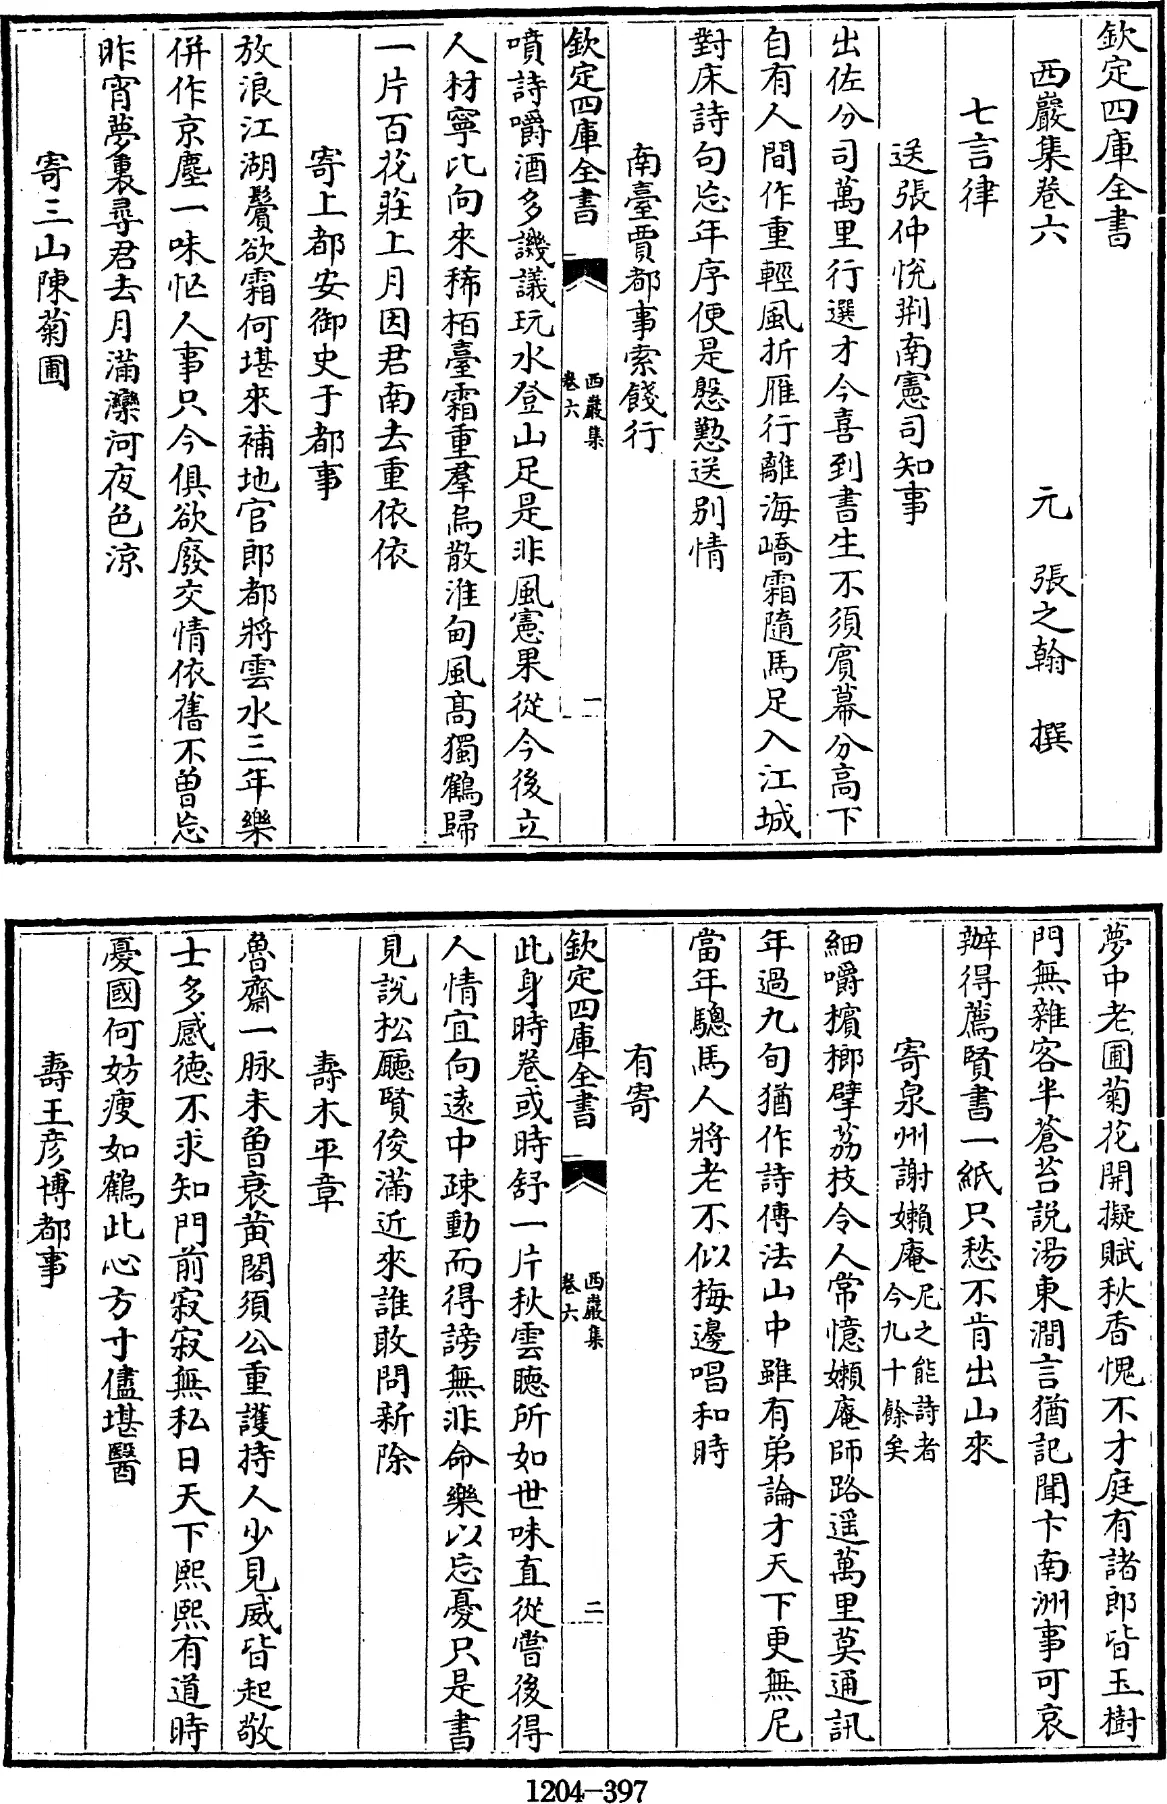 欽定四庫全書
西巖集卷六
元 張之翰 撰
七言律
送張仲恱荆南憲司知事
出佐分司萬里行選才今喜到書生不須賓幕分高下
自有人間作重輕風折雁行離海嶠霜隨馬足入江城
對床詩句忘年序便是慇懃送别情
南臺賈都事索餞行
欽定四庫全書
西巖集
卷六
一
噴詩嚼酒多譏議玩水登山足是非風憲果從今後立
人材寧比向來稀栢臺霜重羣烏散淮甸風高獨鶴歸
一片百花莊上月因君南去重依依
寄上都安御史于都事
放浪江湖鬢欲霜何堪來補地官郎都將雲水三年樂
併作京塵一味忙人事只今俱欲廢交情依舊不曽忘
昨宵夢裏尋君去月滿灤河夜色涼
寄三山陳菊圃
夢中老圃菊花開擬賦秋香愧不才庭有諸郎皆玉樹
門無雜客半蒼苔説湯東澗言猶記聞卞南洲事可哀
辦得薦賢書一紙只愁不肯出山來
寄泉州謝嬾庵尼之能詩者今九十餘矣
細嚼檳榔擘荔枝令人常憶嬾庵師路遥萬里莫通訊
年過九旬猶作詩傳法山中雖有弟論才天下更無尼
當年驄馬人將老不似梅邊唱和時
有寄
欽定四庫全書
西巖集
卷六
二
此身時卷或時舒一片秋雲聽所如世味直從嘗後得
人情宜向逺中疎動而得謗無非命樂以忘憂只是書
見説松廳賢俊滿近來誰敢問新除
壽木平章
魯齋一脉未曽衰黄閣須公重護持人少見威皆起敬
士多感德不求知門前寂寂無私日天下熙熙有道時
憂國何妨瘦如鶴此心方寸儘堪醫
壽王彦博都事
1204-397